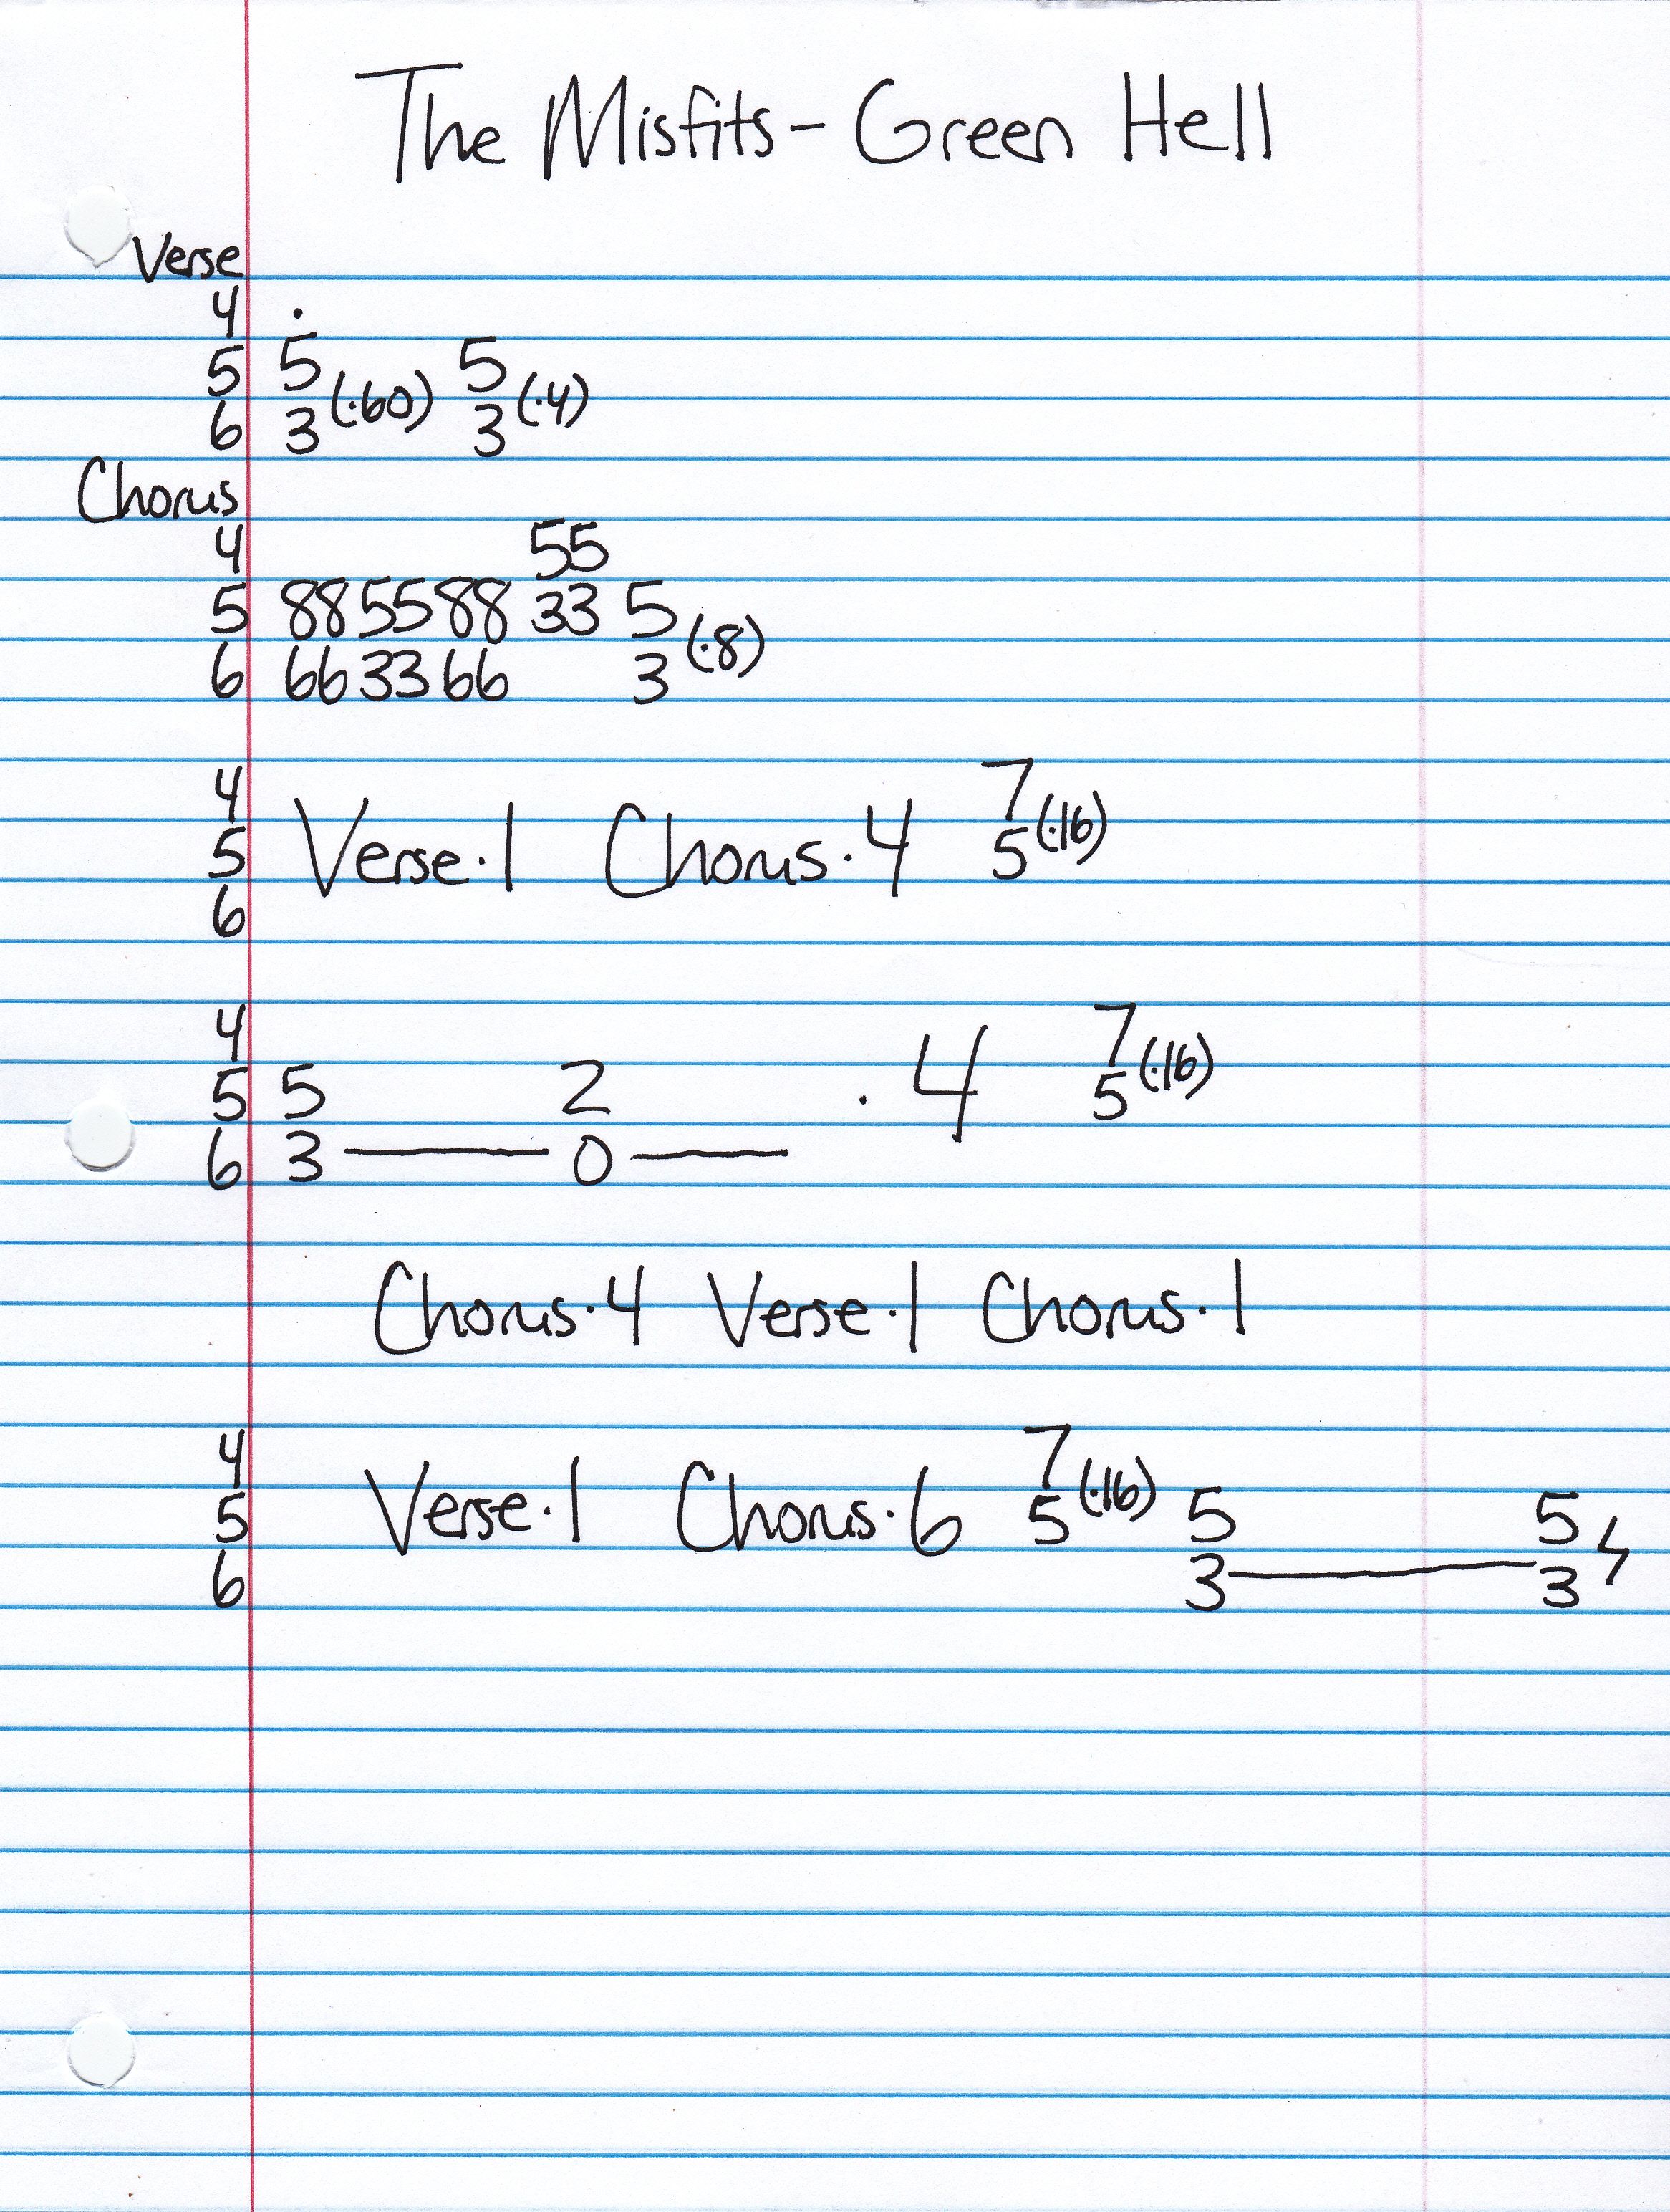 The Misfits - Green Hell
Verse
4 .
5 5 (·60) 5 (·4)
6 3 3
Chorus
4 55
5 885588 33 5 (·8)
6 663366 3
4 7 (·16)
5 Verse·1 Chorus·4 5
6
4 7 (·16)
5 5 2 · 4 5
6 3 — 0 —
Chorus·4 Verse·1 Chorus·1
4 7 (·16)
5 Verse·1 Chorus·6 5 5 5
6 3 — 3